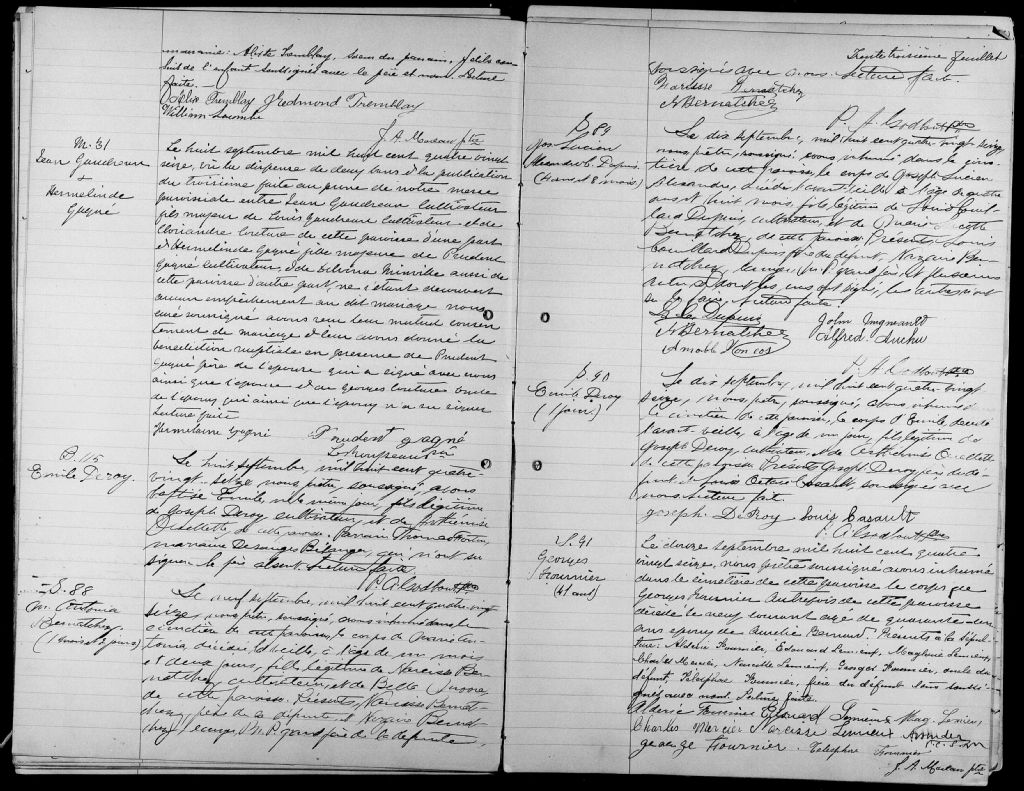 marraine: Alexte Tremblay, soeur du parrain,
suit de l'enfant soussignés avec le père et nous. Lecture
faite.
Alexe Tremblay J Redmond Tremblay
William Lacombe
J. A. Moreau ptre
M. 31
Jean Gaudreau
+
Hermelinde
Gagné
Le huit septembre mil huit cent quatre vingt
seize, vu la dispense de deux bans et la publication
du troisième faite au prone de notre messe
paroissiale entre Jean Gaudreau Cultivateur
fils majeur de Louis Gaudreau Cultivateur et de
Couture de cette paroisse d'une part
et Hermelinde Gagné fille majeure de Prudent
Gagné Cultivateur, & de Minville aussi de
cette paroisse d'autre part, ne s'étant découvert
aucun empêchement au dit mariage nous
curé soussigné avons reçu leur mutuel consen
tement de mariage & leur avons donné la
bénédiction nuptiale en présence de Prudent
Gagné père de l'épouse qui a signé avec nous
ainsi que l'épouse et de Georges Couture oncle
de l'époux qui ainsi que l'époux n'a su signer
Lecture faite
Hermelaine Gagné Prudent gagné
B. 115
Emile Deroy.
Le huit septembre, mil huit cent quatre-
vingt-seize nous prêtre, soussigné, avons
baptisé Emile, né le même jour, fils légitime
de Joseph Deroy cultivateur et de Arthémise
Ouellette de cette paroisse. Parrain Thomas
marraine Desanges Bélanger, qui n'ont su
signer. Le père absent. Lecture faite.
P. A. Godbout ptre
S. 88
M. Antonia
Bernatchez
(1 mois et 2 jours)
Le neuf septembre, mil huit cent quatre-vingt
seize, nous prêtre, soussigné, avons inhumé dans le
cimetière de cette paroisse, le corps de Marie An-
tonia, décédée, la veille, à l'âge de un mois
et deux jours, fille légitime de Narcisse Ber-
natchez, cultivateur, et de
de cette paroisse. Présents, Narcisse Bernat-
chez, père de la défunte et Nazaire Bernat-
chez, Ecuier, M.P. grand père de la défunte,
Trente troisième feuillet
soussignés avec nous. Lecture faite.
Narcisse Bernatchez
N Bernatchez
P. A. Godbout ptre
S 89
Jos. Lucien
Alexandre C. Dupuis.
(4 ans et 8 mois)
Le dix septembre, mil huit cent quatre vingt seize,
nous prêtre, soussigné, avons inhumé dans le cime-
tière de cette paroisse, le corps de Joseph Lucien
Alexandre, décédé l'avant-veille à l'âge de quatre
ans et huit mois, fils légitime de Louis Couil-
lard Dupuis, cultivateur, et de Marie
Bernatchez, de cette paroisse. Présents Louis
Couillard Dupuis, père du défunt, Nazaire Ber-
natchez, Ecuier, M.P. grand père et plusieurs
autres dont les uns ont signé, les autres n'ont
su le faire. Lecture faite.
L. C. Dupuis John
N Bernatchez Alfred
P. A. Godbout ptre
S. 90
Emile Deroy
(1 jour)
Le dix septembre, mil huit cent quatre vingt
seize, nous prêtre, soussigné, avons inhumé dans
le cimetière de cette paroisse, le corps d'Emile décédé
l'avant veille, à l'âge de un jour, fils légitime de
Joseph Deroy, cultivateur, & de Arthémise Ouellette
de cette paroisse. Présents Joseph Deroy, père du dé-
funt et Louis Casault, soussignés avec
nous. Lecture faite.
Joseph DeRoy Louis Casault
P. A. Godbout ptre
S. 91
Georges
Fournier
(41 ans)
Le douze septembre mil huit cent quatre
vingt seize, nous prêtre soussigné avons inhumé
dans le cimetière de cette paroisse le corps de
Georges Fournier autrefois de cette paroisse
décédé le neuf courant agé de quarante-un
ans époux de Amélie Bernard. Présents à la sépul-
ture: Aldéric Fournier, Edouard Lemieux, Magloire Lemieux,
Charles Mercier, Narcisse Lemieux, Georges Fournier, oncle du
défunt, Télesphore Fournier, frère du défunt tous soussi-
gnés avec nous. Lecture faite.
Aldéric Fournier Edouard Lemieux Mag. Lemieux
Charles Mercier Narcisse Lemieux
george Fournier Telesphore Fournier
J. A. Moreau ptre